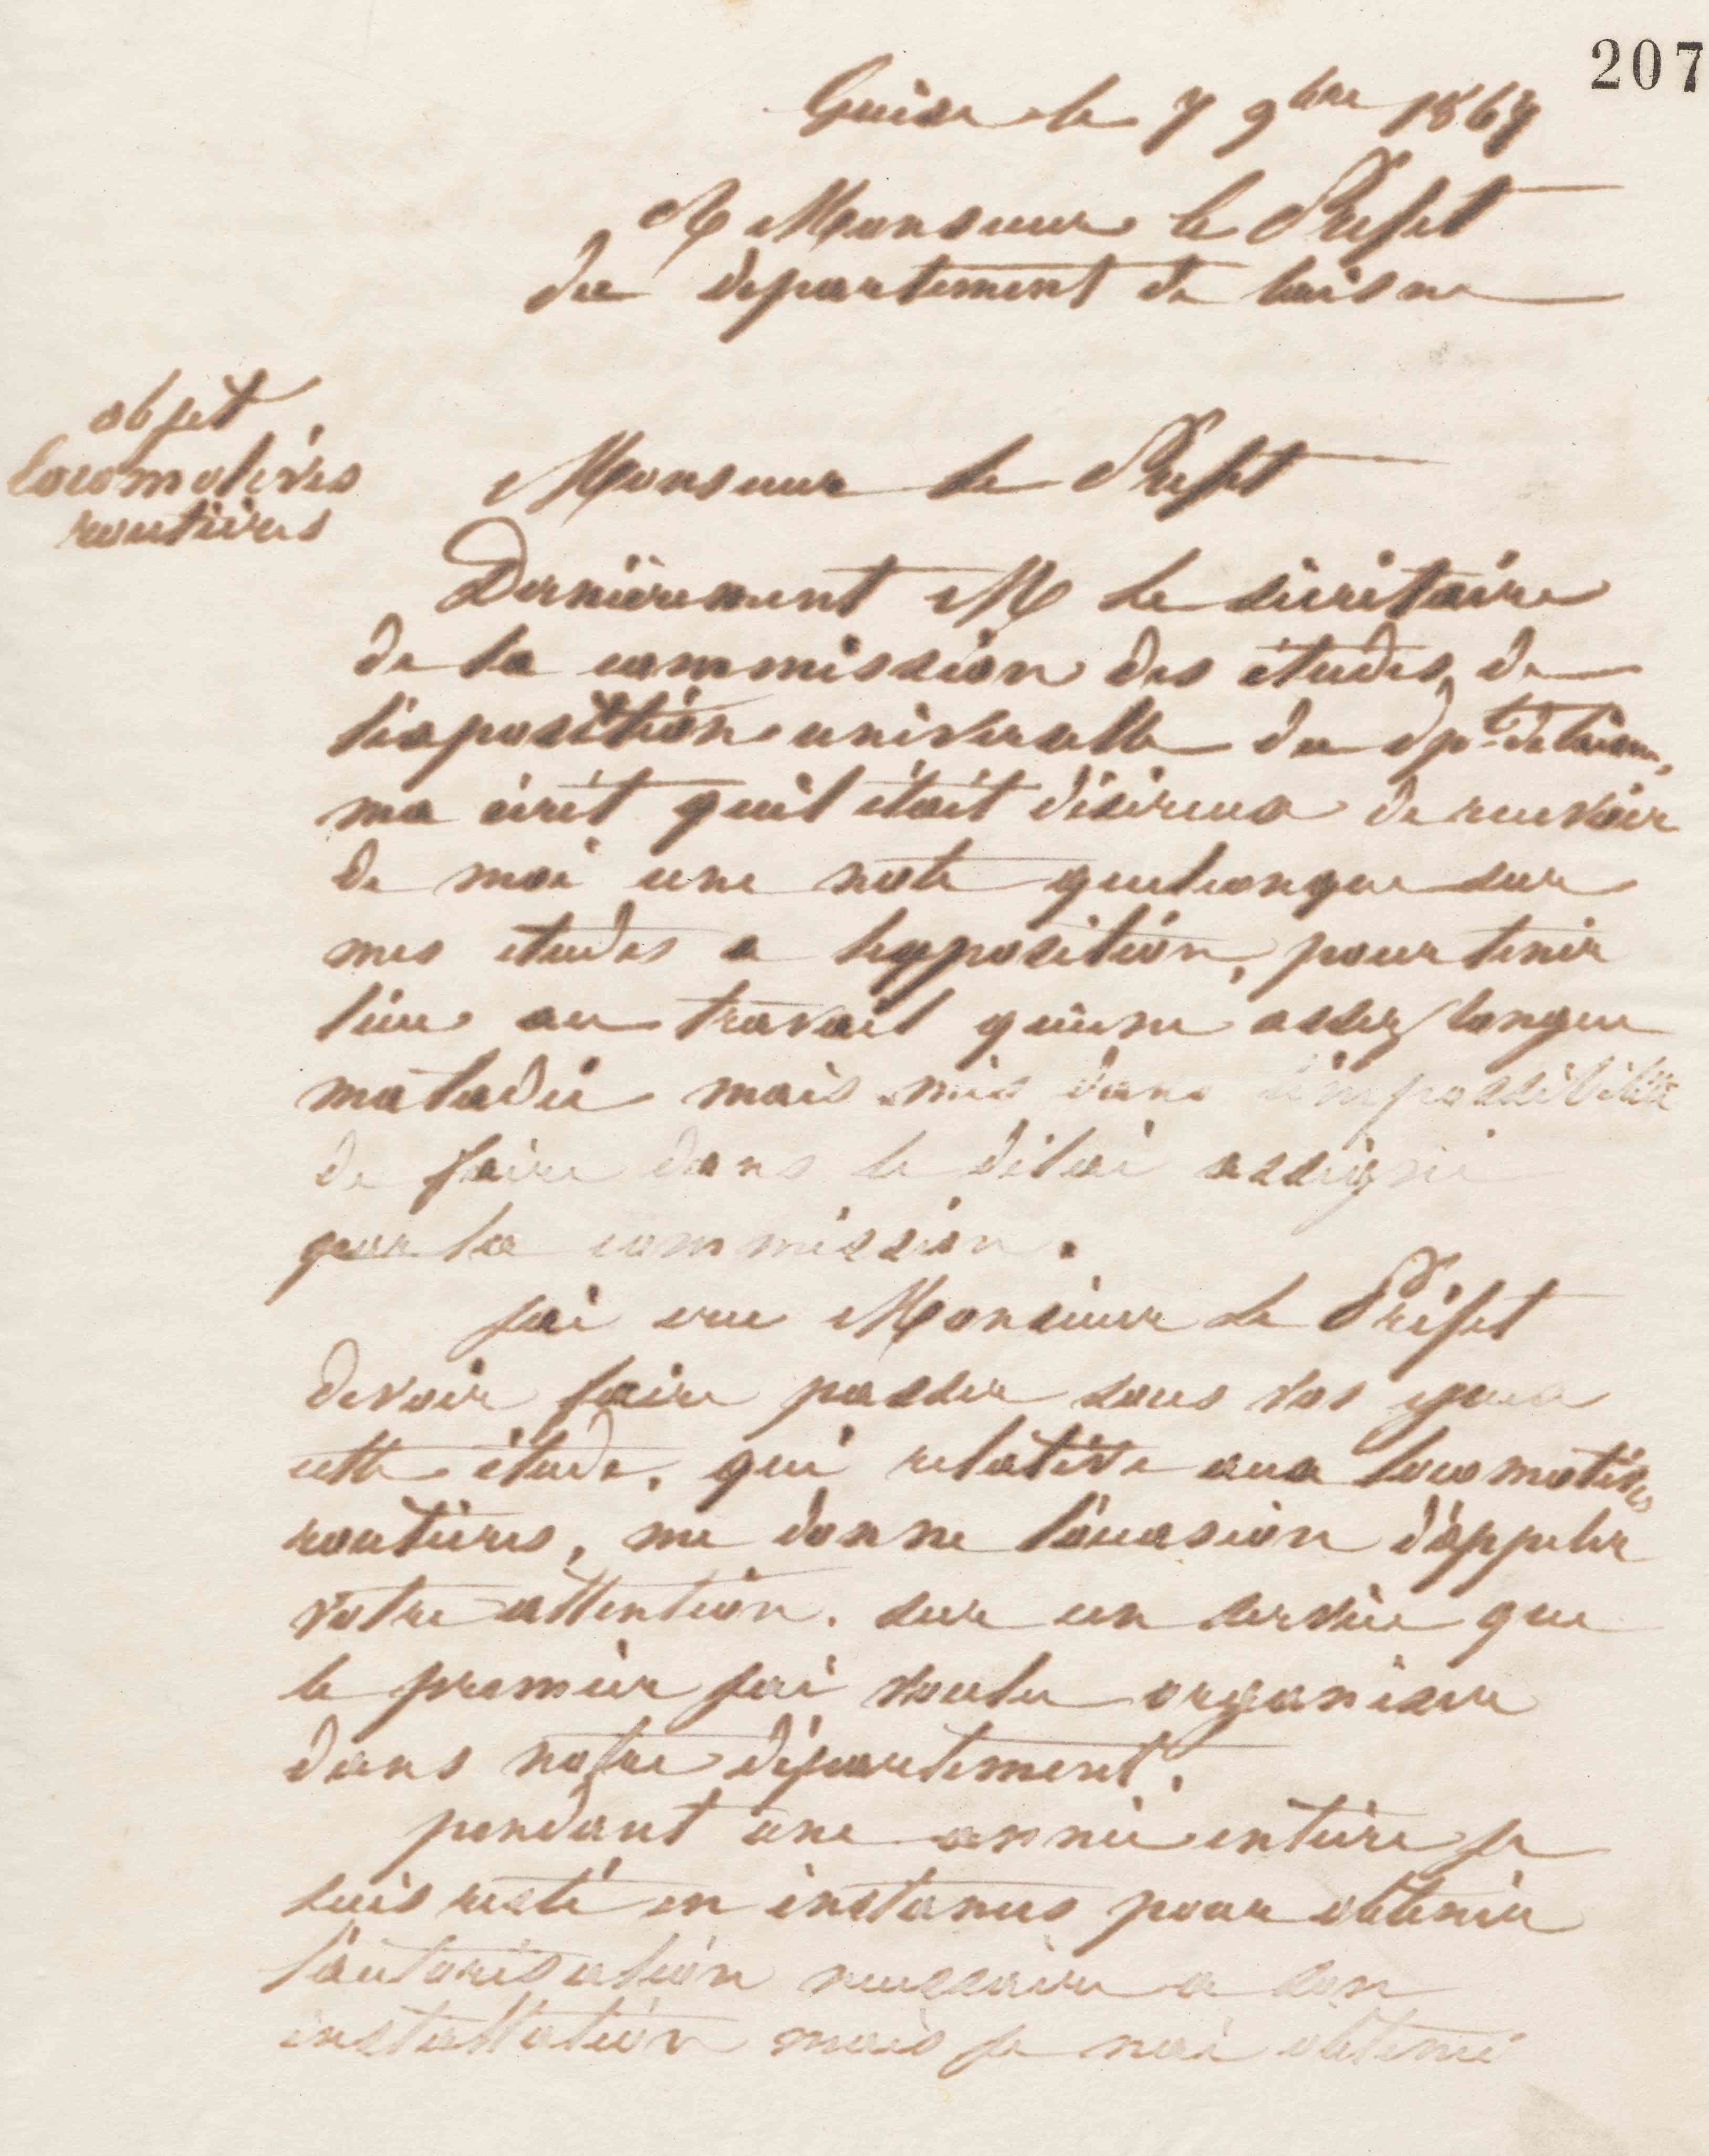 207
Guise le 7 9bre 1867
A Monsieur le Prefet
du departement de laisne
objet
locomotives
routières
Monsieur le Prefet
Dernièrement M le sécritaire
de la commission des études, de
l'exposition universelle du dpt de laisne,
ma écrit quil était désireux de recevoir
de moi une note quelconque sur
mes etudes a lexposition, pour tenir
lieu au travail qu'une assez longue
maladie mais mis dans l'impossibilité
de faire dans le délai assigné
par la commission.
j'ai cru Monsieur le Préfet
devoir faire passer sous vos yeux
cette étude, qui relative aux locomotives
routières, me donne l'occasion d'appeler
votre attention, sur un service que
le premier j'ai voulu organiser
dans notre département.
pendant une année entière je
suis resté en instances pour obtenir
l'autorisation necessaire a son
installation mais je nai obtenu